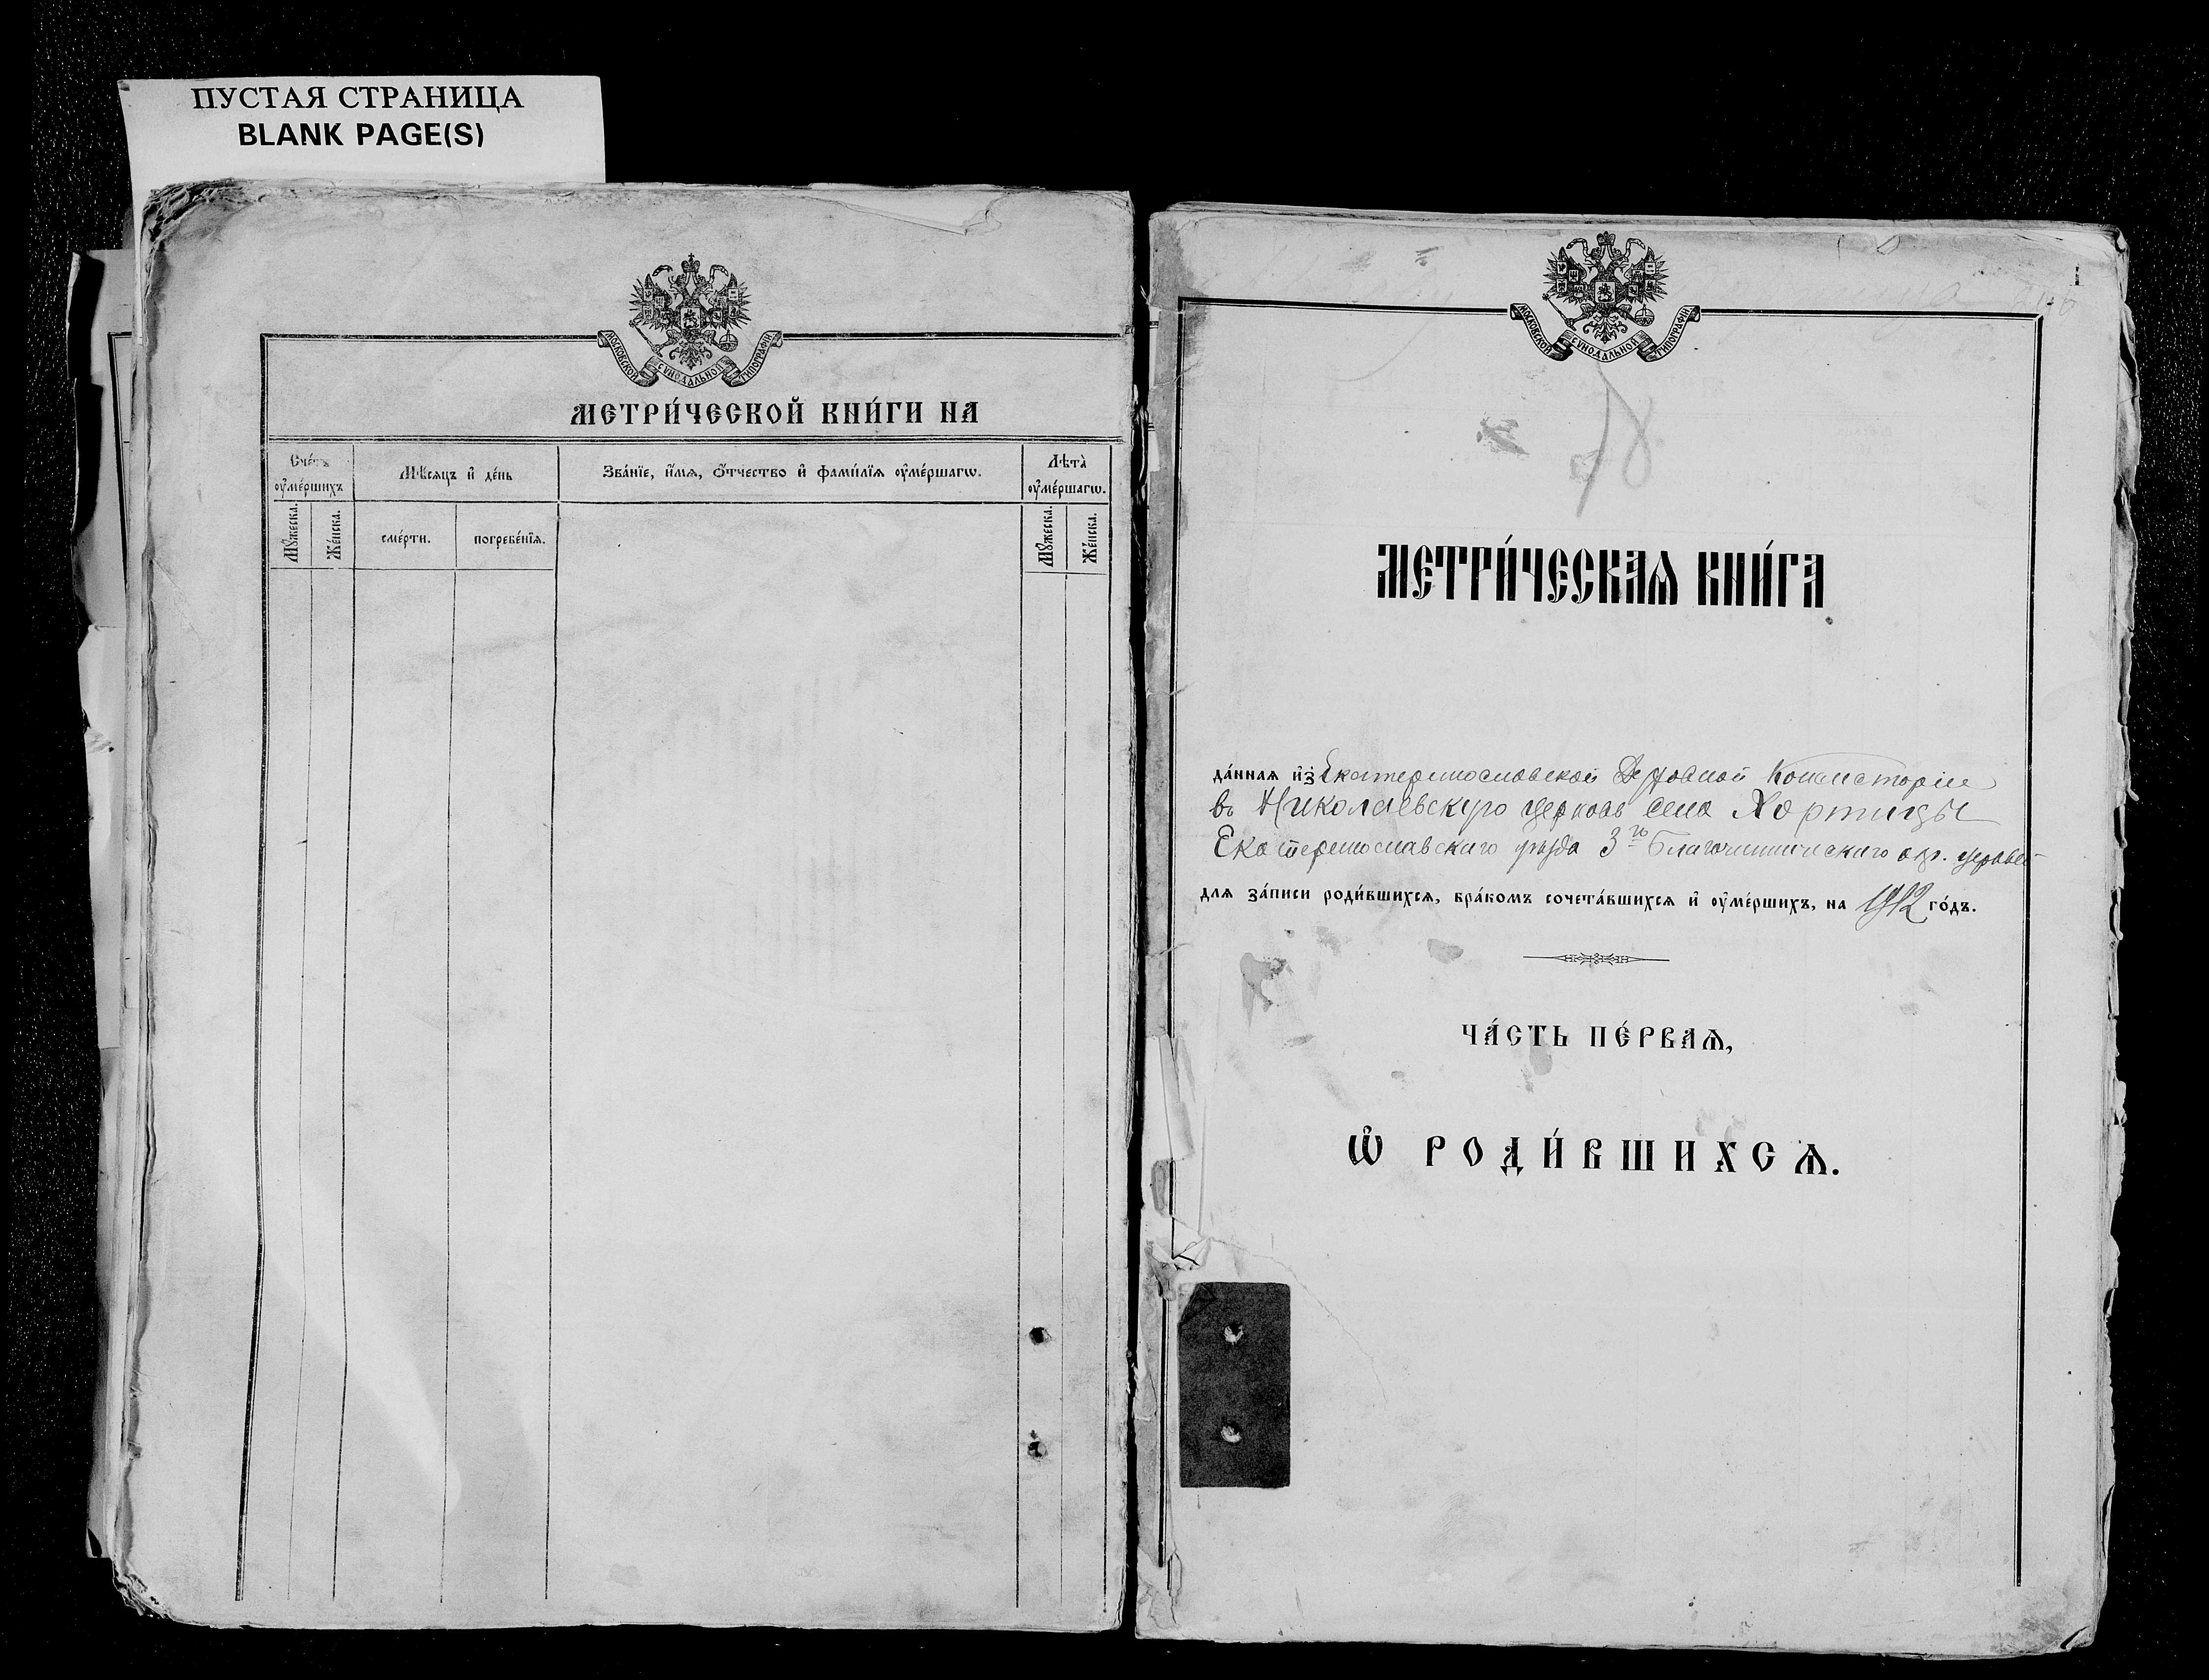 ПУСТАЯ СТРАНИЦА
BLANK PAGE(S)
МОСКОВСКОЙ СУНОДАЛЬНОЙ ТИПОГРАФІИ
МЕТРИ́ЧЕСКОЙ КНИ́ГИ НА
Сче́тъ ᲂу҆ме́ршихъ
Мѣ́сяцъ и҆ де́нь
Зва́нїе, и҆́мѧ, ѻ҆́тчество и҆ фами́лїѧ ᲂу҆ме́ршагѡ.
Лѣта̀ ᲂу҆ме́ршагѡ.
Мꙋ́жеска.
Же́нска.
сме́рти.
погребе́нїѧ.
Мꙋ́жеска.
Же́нска.
МОСКОВСКОЙ СУНОДАЛЬНОЙ ТИПОГРАФІИ
1
МЕТРИ́ЧЕСКАѦ КНИ́ГА
да́ннаѧ и҆з̾ Екатеринославской Духовной Консисторіи
въ Николаевскую церковь села Хортицы
Екатеринославскаго уѣзда 3го Благочинническаго окр.
длѧ за́писи роди́вшихсѧ, бра́комъ сочета́вшихсѧ и҆ ᲂу҆ме́ршихъ, на 1912 го́дъ.
ЧА́СТЬ ПЕ́РВАѦ,
Ѡ҆ РОДИ́ВШИХСѦ.